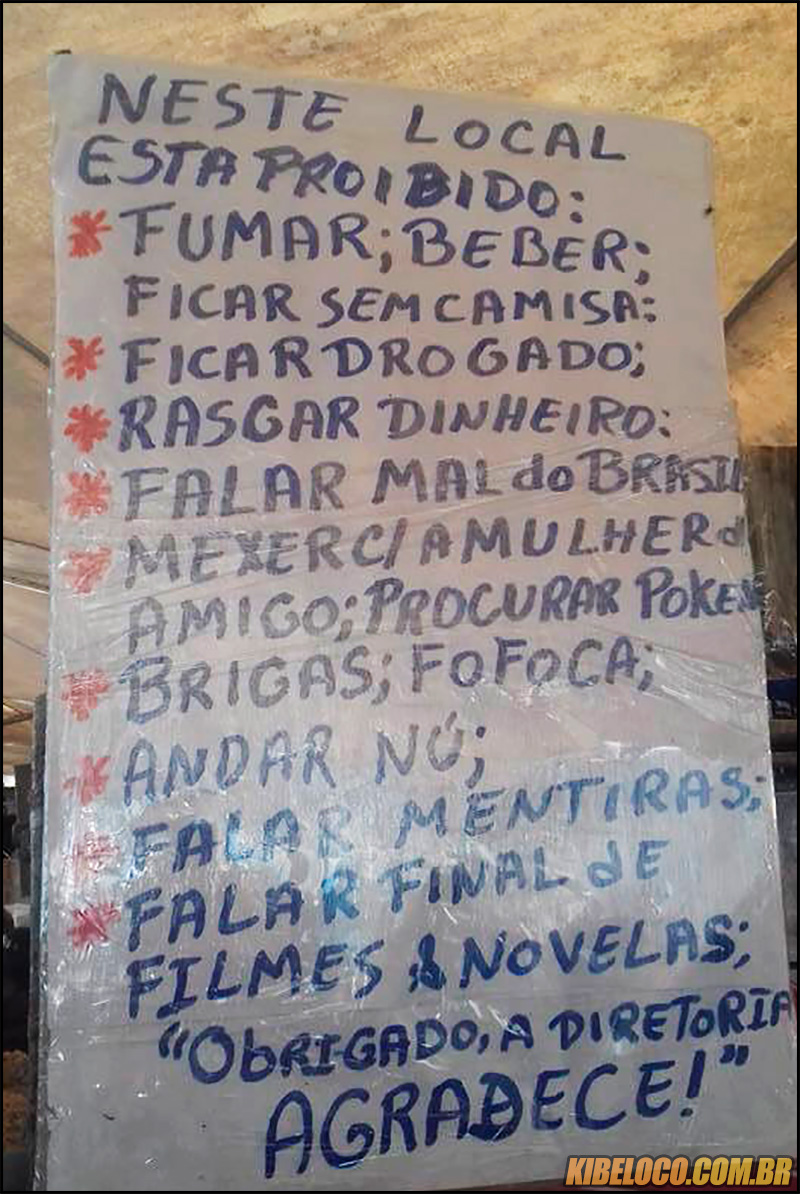 NESTE LOCAL
ESTA PROIBIDO:
* FUMAR; BEBER;
FICAR SEM CAMISA:
* FICAR DROGADO;
* RASGAR DINHEIRO:
* FALAR MAL do BRASIL
* MEXER C/ A MULHER d
AMIGO; PROCURAR POKEM
* BRIGAS; FOFOCA;
* ANDAR NÚ;
* FALAR MENTIRAS;
* FALAR FINAL dE
FILMES & NOVELAS;
"ObRIGADO, A DIRETORIA
AGRADECE!"
KIBELOCO.COM.BR